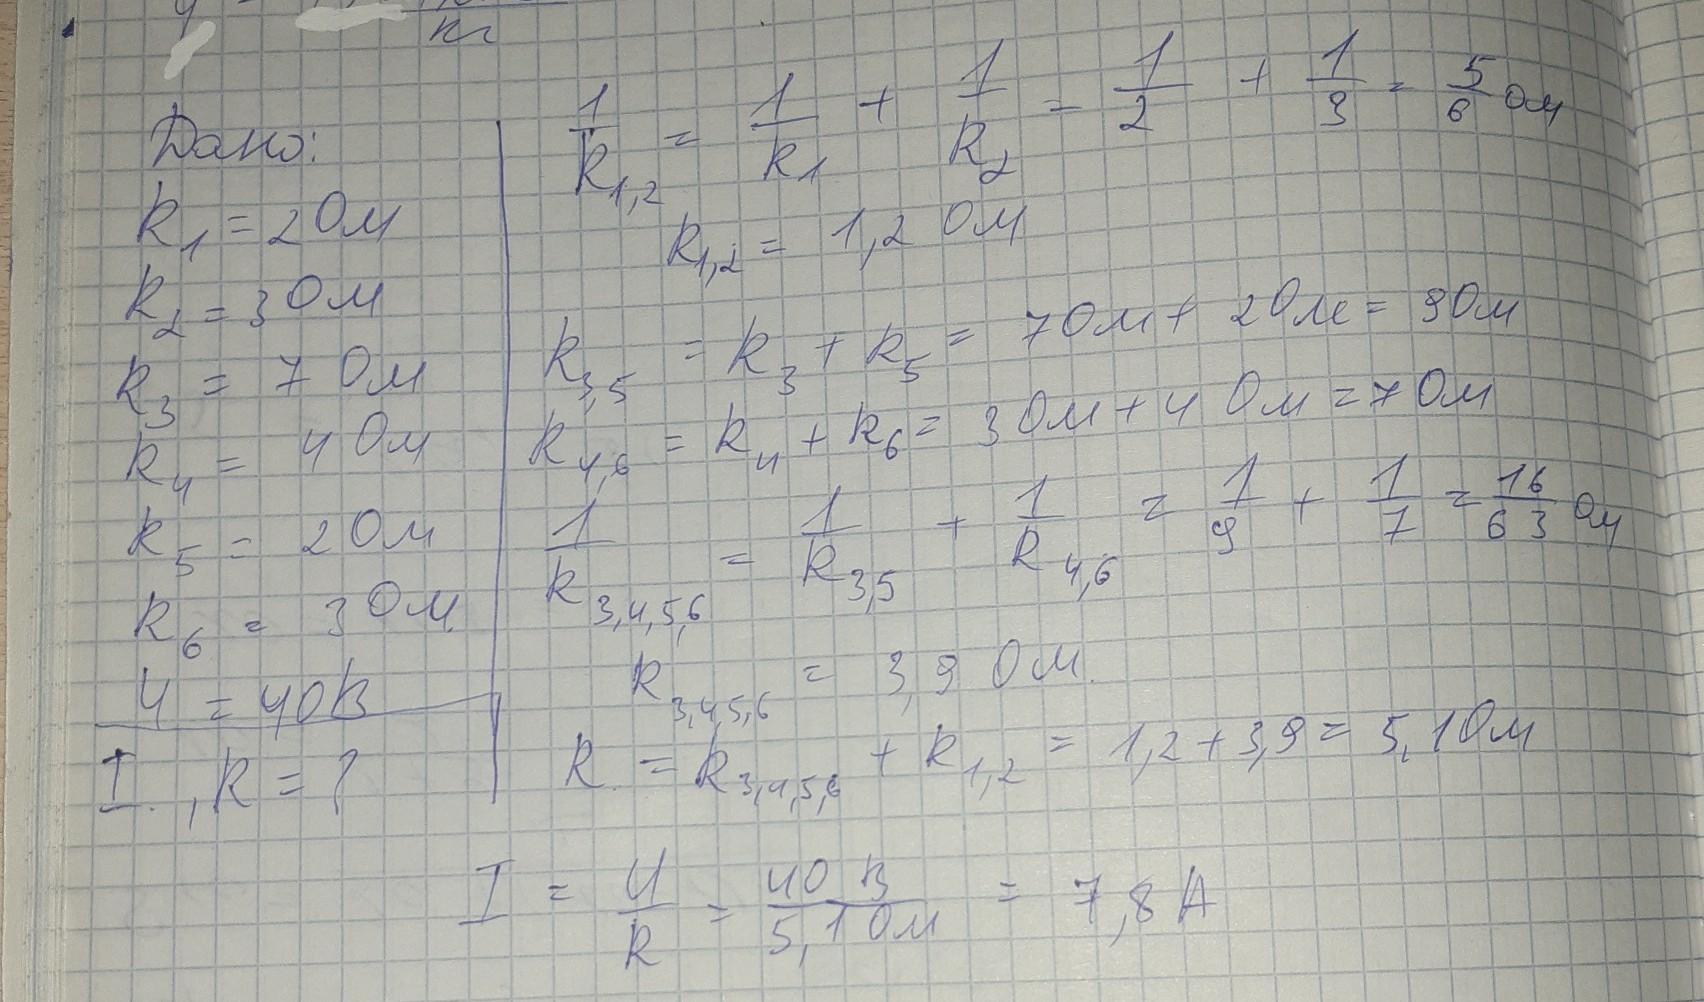 кг
Дано:
R1 = 2 Ом
R2 = 3 Ом
R3 = 7 Ом
R4 = 4 Ом
R5 = 2 Ом
R6 = 3 Ом.
U = 40 В
I, R = ?
1/R1,2 = 1/R1 + 1/R2 = 1/2 + 1/3 = 5/6 Ом
R1,2 = 1,2 Ом
R3,5 = R3 + R5 = 7 Ом + 2 Ом = 9 Ом
R4,6 = R4 + R6 = 3 Ом + 4 Ом = 7 Ом
1/R3,4,5,6 = 1/R3,5 + 1/R4,6 = 1/9 + 1/7 = 16/63 Ом
R3,4,5,6 = 3,9 Ом.
R = R3,4,5,6 + R1,2 = 1,2 + 3,9 = 5,1 Ом
I = U/R = 40 В/5,1 Ом = 7,8 А